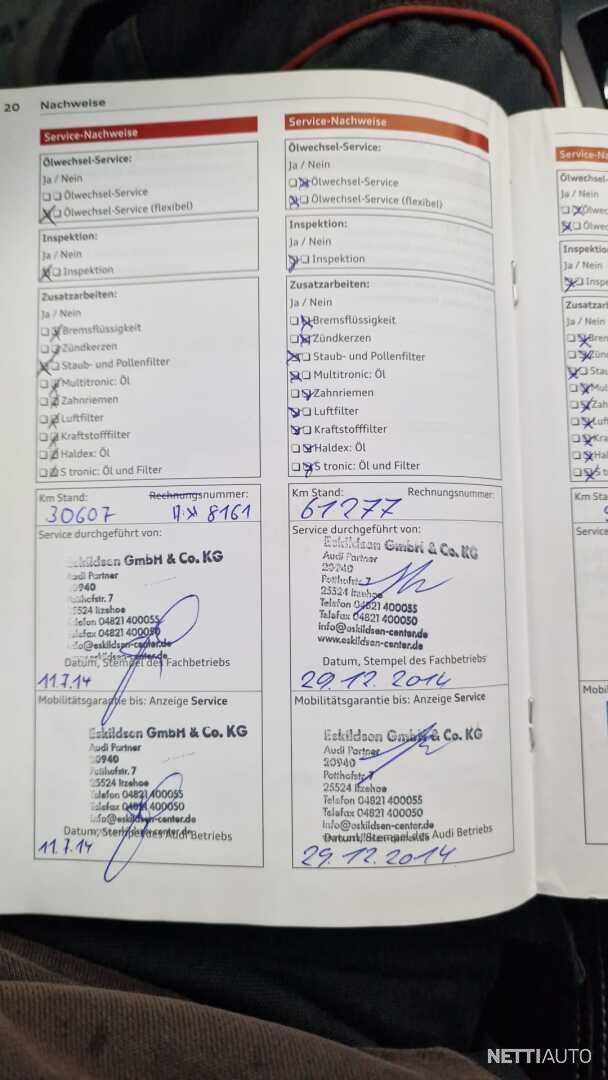 20 Nachweise
Service-Nachweise
Ölwechsel-Service:
Ja / Nein
Ölwechsel-Service
Ölwechsel-Service (flexibel)
Inspektion:
Ja / Nein
Inspektion
Zusatzarbeiten:
Ja / Nein
Bremsflüssigkeit
Zündkerzen
Staub- und Pollenfilter
Multitronic: Öl
Zahnriemen
Luftfilter
Kraftstofffilter
Haldex: Öl
S tronic: Öl und Filter
Km Stand: Rechnungsnummer:
30607 8161
Service durchgeführt von:
Eskildsen GmbH & Co. KG
Audi Partner
20940
Potthofstr. 7
25524 Itzehoe
Telefon 04821 400055
Telefax 04821 400050
info@eskildsen-center.de
Datum, Stempel des Fachbetriebs
11.7.14
Mobilitätsgarantie bis: Anzeige Service
Eskildsen GmbH & Co. KG
Audi Partner
20940
Potthofstr. 7
25524 Itzehoe
Telefon 04821 400055
Telefax 04821 400050
info@eskildsen-center.de
Datum, Stempel des Audi Betriebs
11.7.14
Service-Nachweise
Ölwechsel-Service:
Ja / Nein
Ölwechsel-Service
Ölwechsel-Service (flexibel)
Inspektion:
Ja / Nein
Inspektion
Zusatzarbeiten:
Ja / Nein
Bremsflüssigkeit
Zündkerzen
Staub- und Pollenfilter
Multitronic: Öl
Zahnriemen
Luftfilter
Kraftstofffilter
Haldex: Öl
S tronic: Öl und Filter
Km Stand: Rechnungsnummer:
61277
Service durchgeführt von:
Eskildsen GmbH & Co. KG
Audi Partner
20940
Potthofstr. 7
25524 Itzehoe
Telefon 04821 400055
Telefax 04821 400050
info@eskildsen-center.de
www.eskildsen-center.de
Datum, Stempel des Fachbetriebs
29.12.2014
Mobilitätsgarantie bis: Anzeige Service
Eskildsen GmbH & Co. KG
Audi Partner
20940
Potthofstr. 7
25524 Itzehoe
Telefon 04821 400055
Telefax 04821 400050
info@eskildsen-center.de
Datum, Stempel des Audi Betriebs
29.12.2014
Ja / Nein
Ja / Nein
Ja / Nein
Service
NETTIAUTO